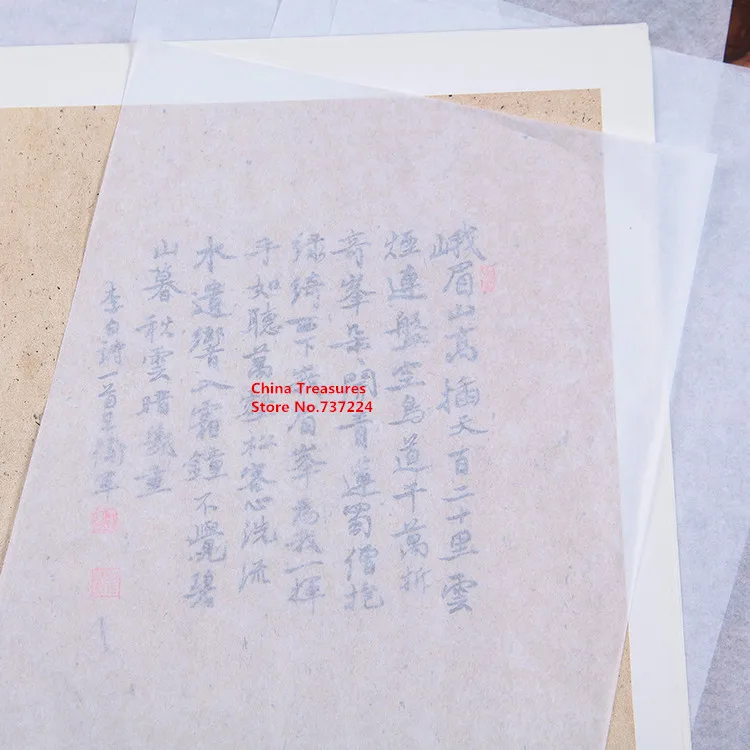 峨眉山高插天百二十里雲
煙連盤空鳥道千萬折
奇峯朵々開青蓮蜀僧抱
绿绮西下峨眉峯為我一揮
手如聽萬壑松客心洗流
水遺響入霜鐘不覺碧
山暮秋雲暗幾重
李白诗一首
China Treasures
Store No.737224